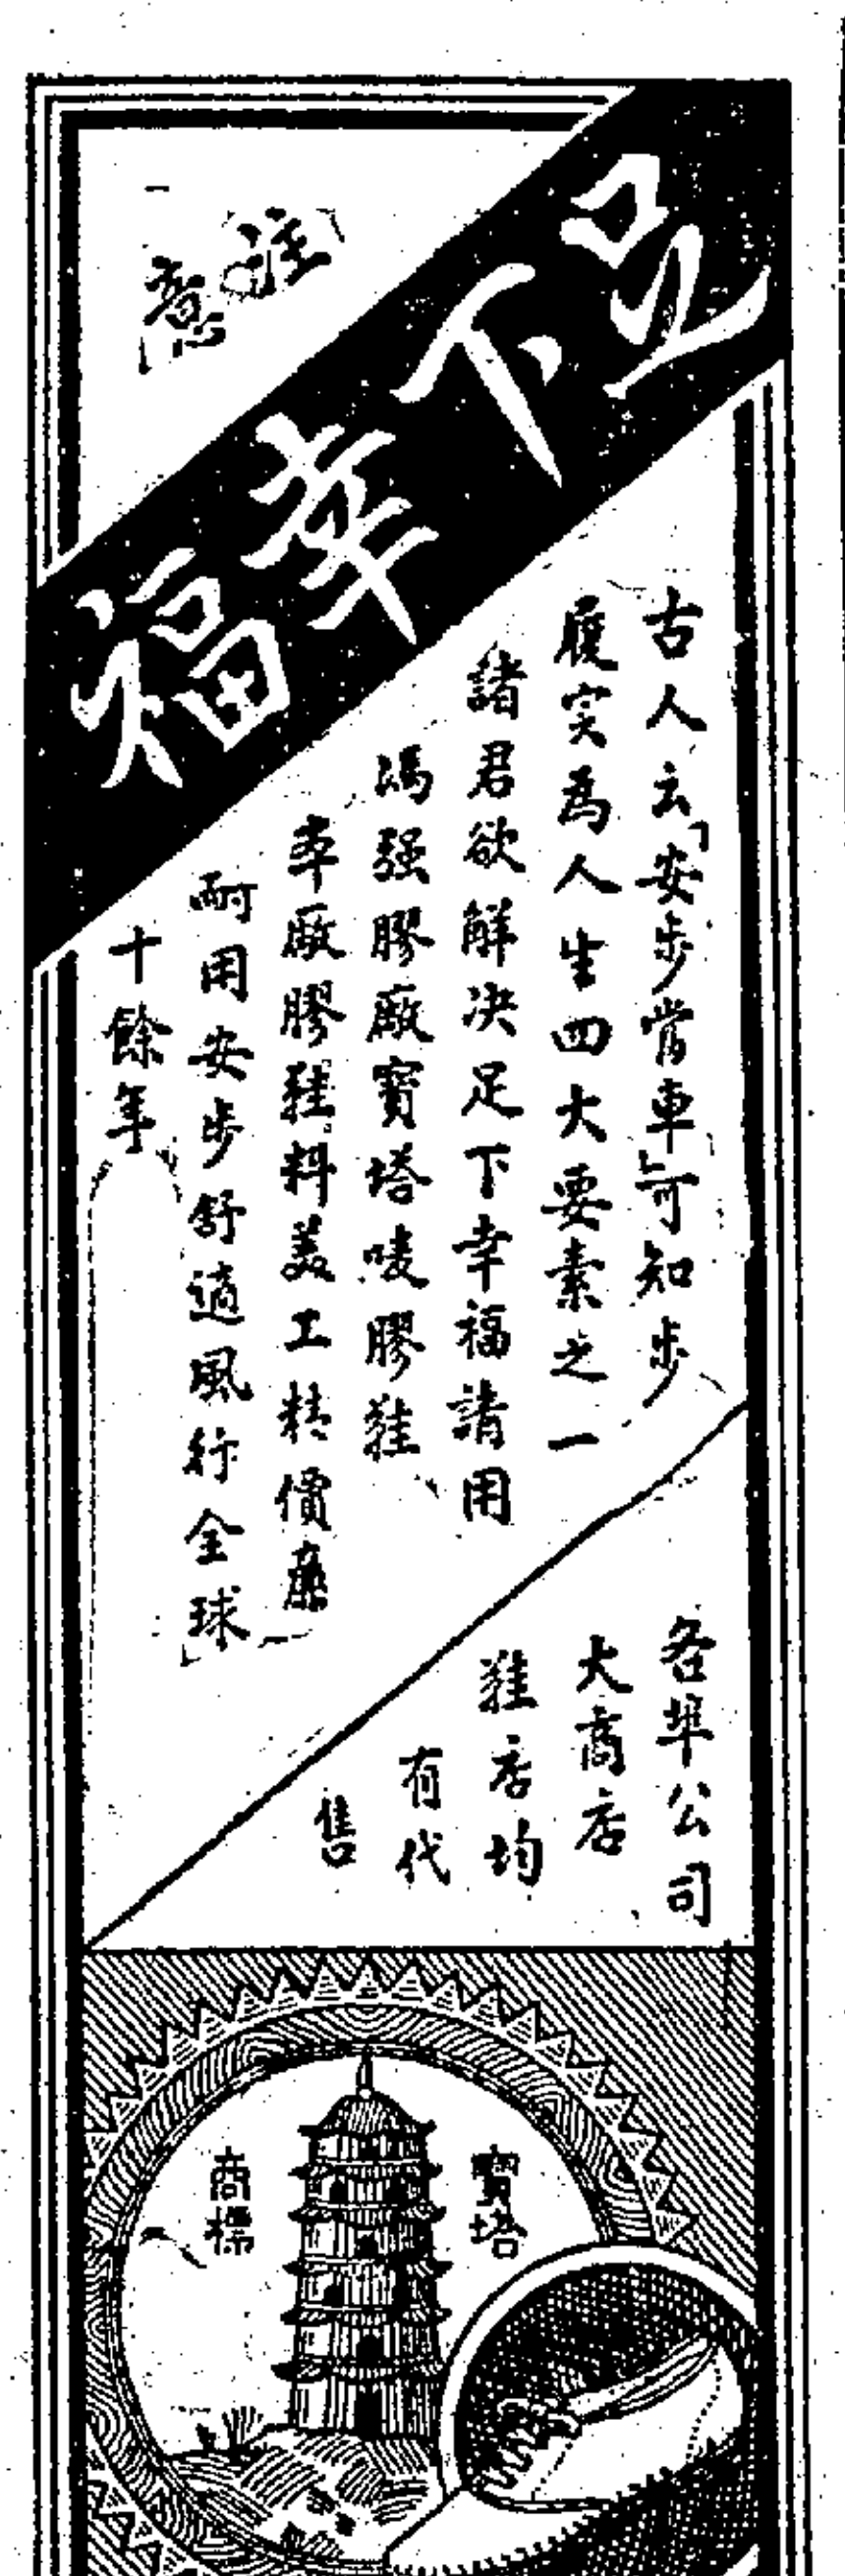 注意
足下幸福
古人云「安步當車」可知步
履實為人生四大要素之一
諸君欲解決足下幸福請用
馮强膠廠寳塔嘜膠鞋
本廠膠鞋料美工精價廉
耐用安步舒適風行全球
十餘年
各埠公司
大商店
鞋店均
有代
售
寳塔
商標